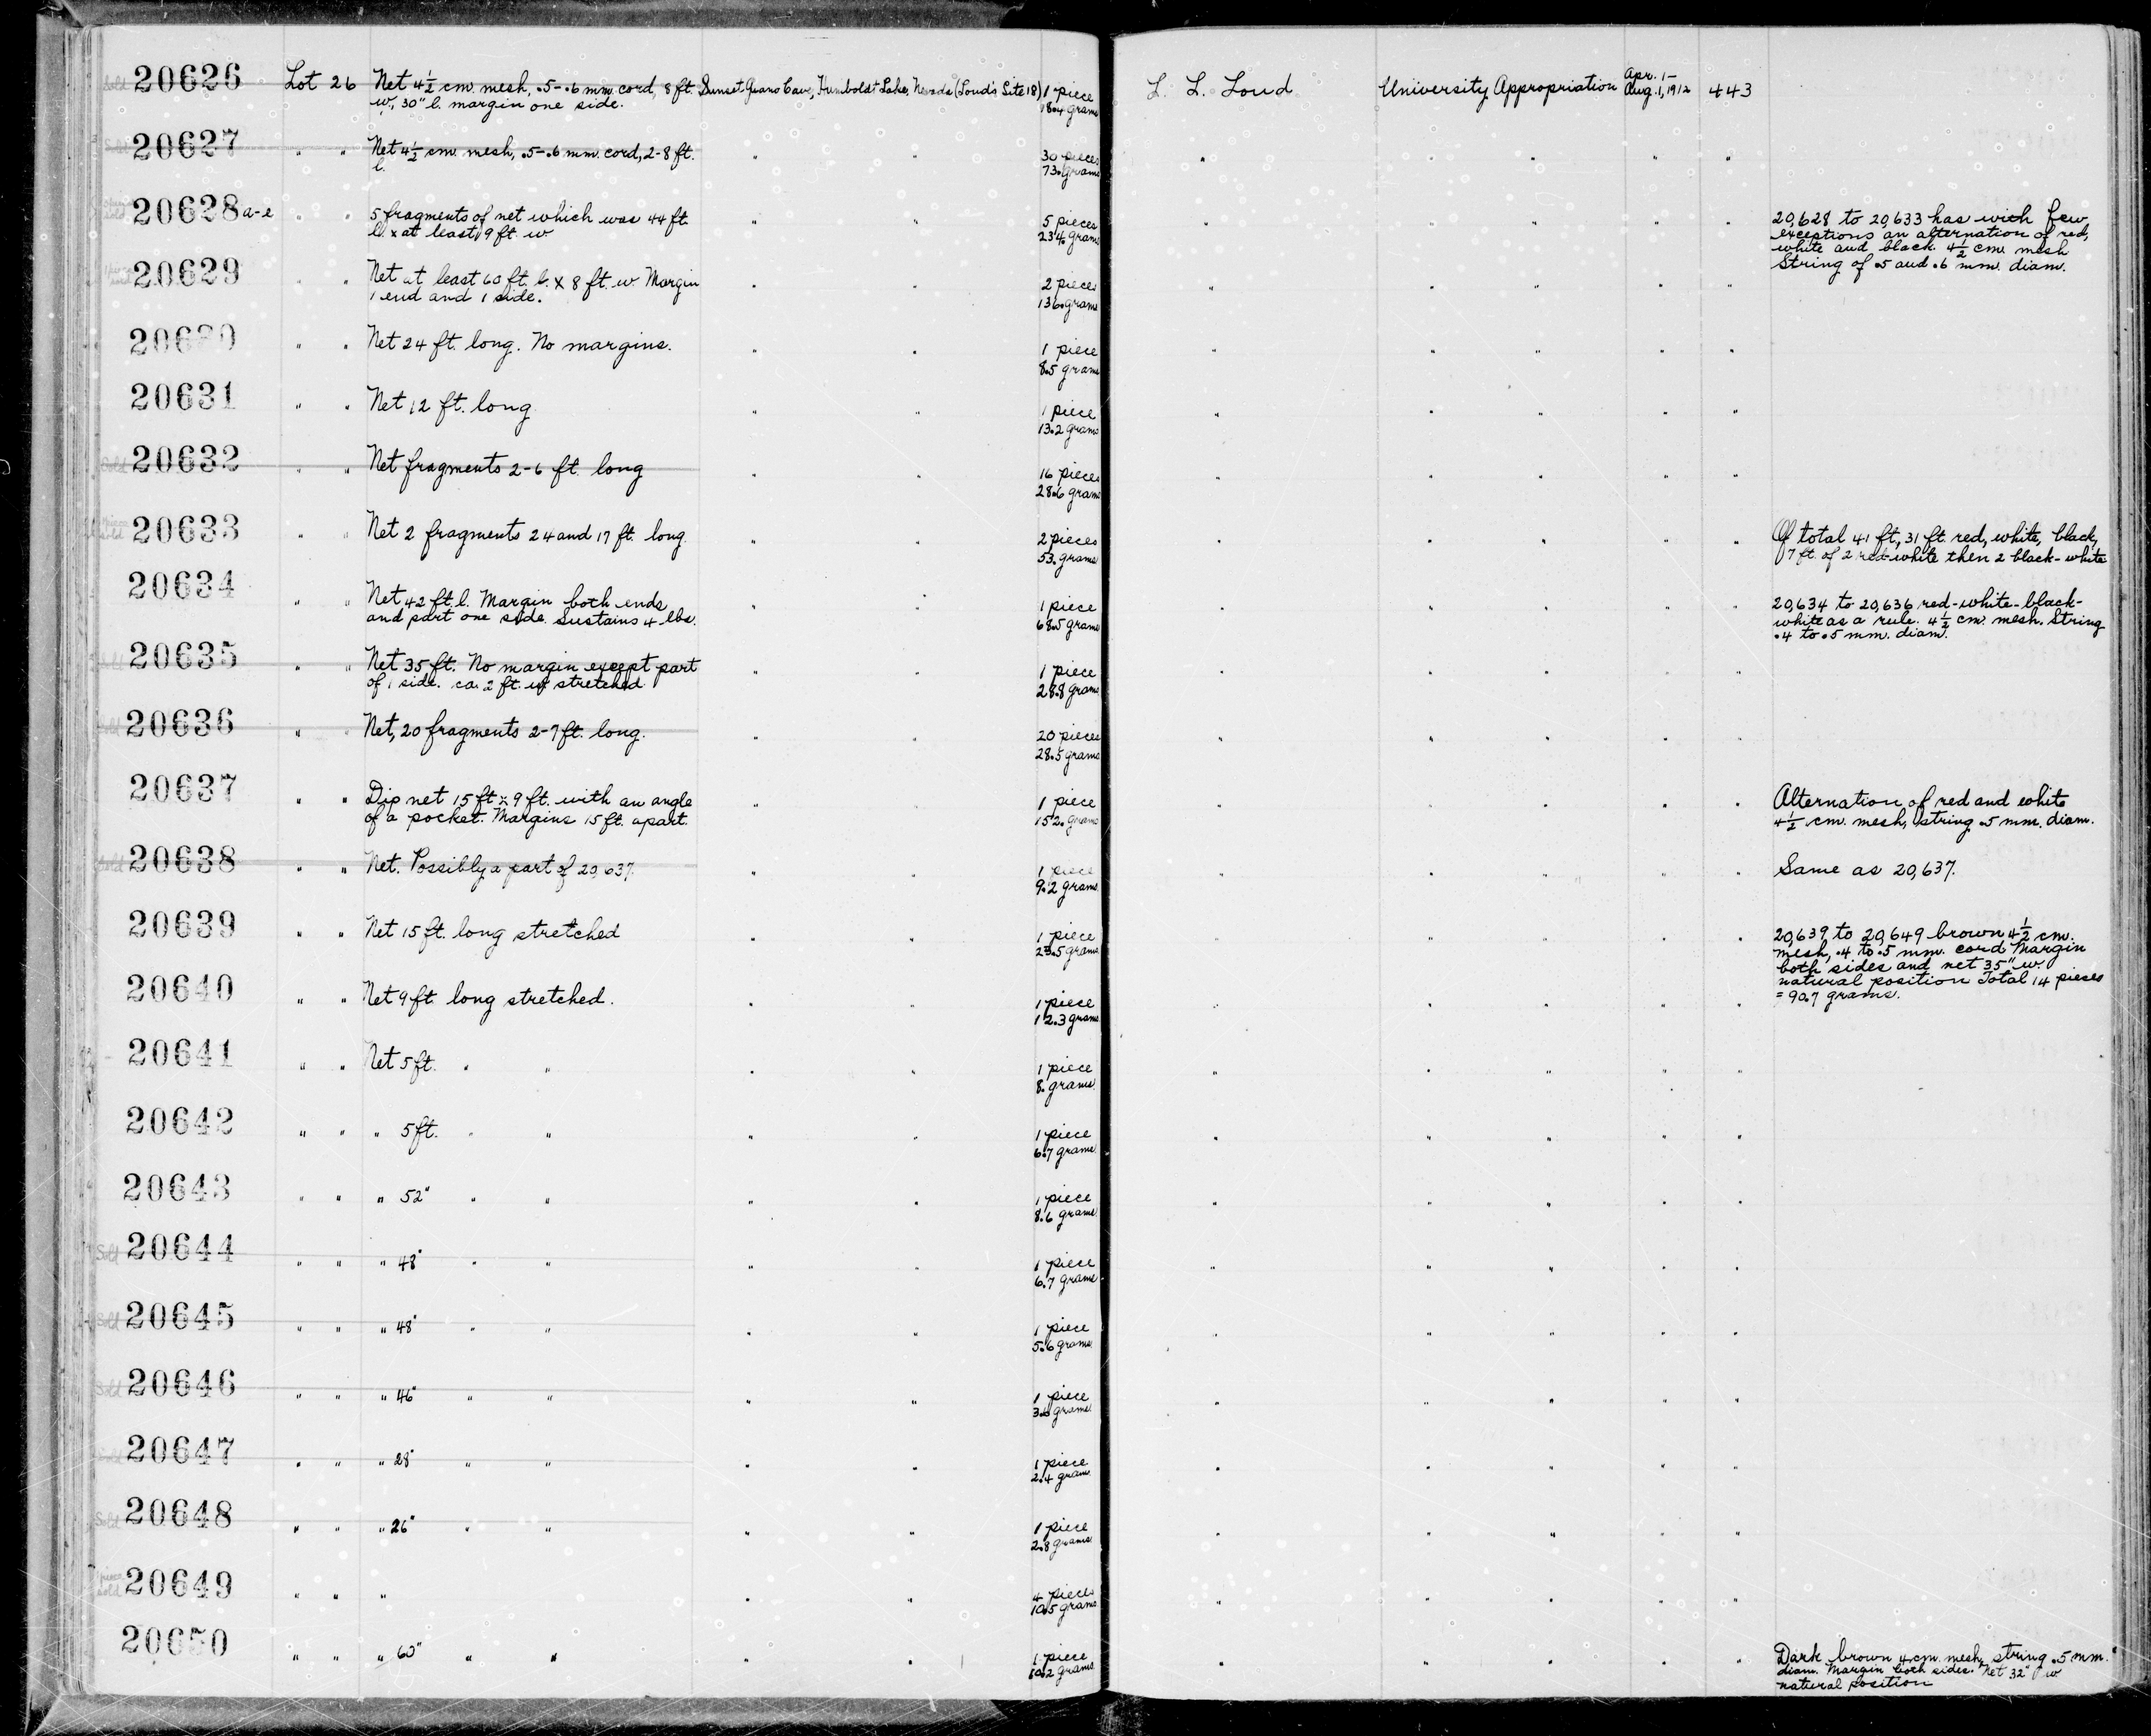 Sold 20626 Lot 26 Net 4½ cm. mesh, .5-.6 mm. cord, 8 ft. Sunset Guano Cave, Humboldt Lake, Nevada (Loud's Site 18) 1 piece L. L. Loud University Appropriation Apr. 1- Aug. 1, 1912 443
w, 30" l. margin one side. 18.4 grams
20627 " " Net 4½ cm. mesh, .5-.6 mm. cord, 2-8 ft. " " 30 pieces " " " " "
l. 73. grams
20628 a-e " " 5 fragments of net which was 44 ft. " " 5 pieces " " " " " 20,628 to 20,633 has with few
l. x at least 9 ft. w 234. grams exceptions an alternation of red,
white and black. 4½ cm. mesh
String of .5 and .6 mm. diam.
20629 " " Net at least 60 ft. l. x 8 ft. w. Margin " " 2 pieces " " " " "
1 end and 1 side. 136. grams
20630 " " Net 24 ft. long. No margins. " " 1 piece " " " " "
8.5 grams
20631 " " Net 12 ft. long " " 1 piece " " " " "
13.2 grams
Sold 20632 " " Net fragments 2-6 ft. long " " 16 pieces " " " " "
28.6 grams
20633 " " Net 2 fragments 24 and 17 ft. long " " 2 pieces " " " " " Of total 41 ft., 31 ft. red, white, black,
53. grams 7 ft. of 2 red-white then 2 black-white
20634 " " Net 42 ft. l. Margin both ends " " 1 piece " " " " " 20,634 to 20,636 red-white-black-
and part one side. Sustains 4 lbs. 68.5 grams white as a rule. 4½ cm. mesh. String
.4 to .5 mm. diam.
Sold 20635 " " Net 35 ft. No margin except part " " 1 piece " " " " "
of 1 side. ca. 2 ft. w stretched 28.8 grams
Sold 20636 " " Net, 20 fragments 2-7 ft. long. " " 20 pieces " " " " "
28.5 grams
20637 " " Dip net 15 ft x 9 ft. with an angle " " 1 piece " " " " " Alternation of red and white
of a pocket. Margins 15 ft. apart. 152. grams 4½ cm. mesh, string .5 mm. diam.
Sold 20638 " " Net. Possibly a part of 20,637. " " 1 piece " " " " " Same as 20,637.
9.2 grams
20639 " " Net 15 ft. long stretched " " 1 piece " " " " " 20,639 to 20,649 brown 4½ cm.
23.5 grams mesh, .4 to .5 mm. cord Margin
both sides and net 35" w.
natural position Total 14 pieces
= 90.7 grams.
20640 " " Net 9 ft. long stretched. " " 1 piece " " " " "
12.3 grams
20641 " " Net 5 ft. " " " " 1 piece " " " " "
8. grams
20642 " " " 5 ft. " " " " 1 piece " " " " "
6.7 grams
20643 " " " 52" " " " " 1 piece " " " " "
8.6 grams
Sold 20644 " " " 48" " " " " 1 piece " " " " "
6.7 grams
Sold 20645 " " " 48" " " " " 1 piece " " " " "
5.6 grams
Sold 20646 " " " 46" " " " " 1 piece " " " " "
3.6 grams
Sold 20647 " " " 28" " " " " 1 piece " " " " "
2.4 grams
Sold 20648 " " " 26" " " " " 1 piece " " " " "
2.8 grams
20649 " " " " " 4 pieces " " " " "
10.5 grams
20650 " " " 60" " " " " 1 piece " " " " " Dark brown 4 cm. mesh, string .5 mm.
10.2 grams diam. Margin both sides. Net 32" w
natural position